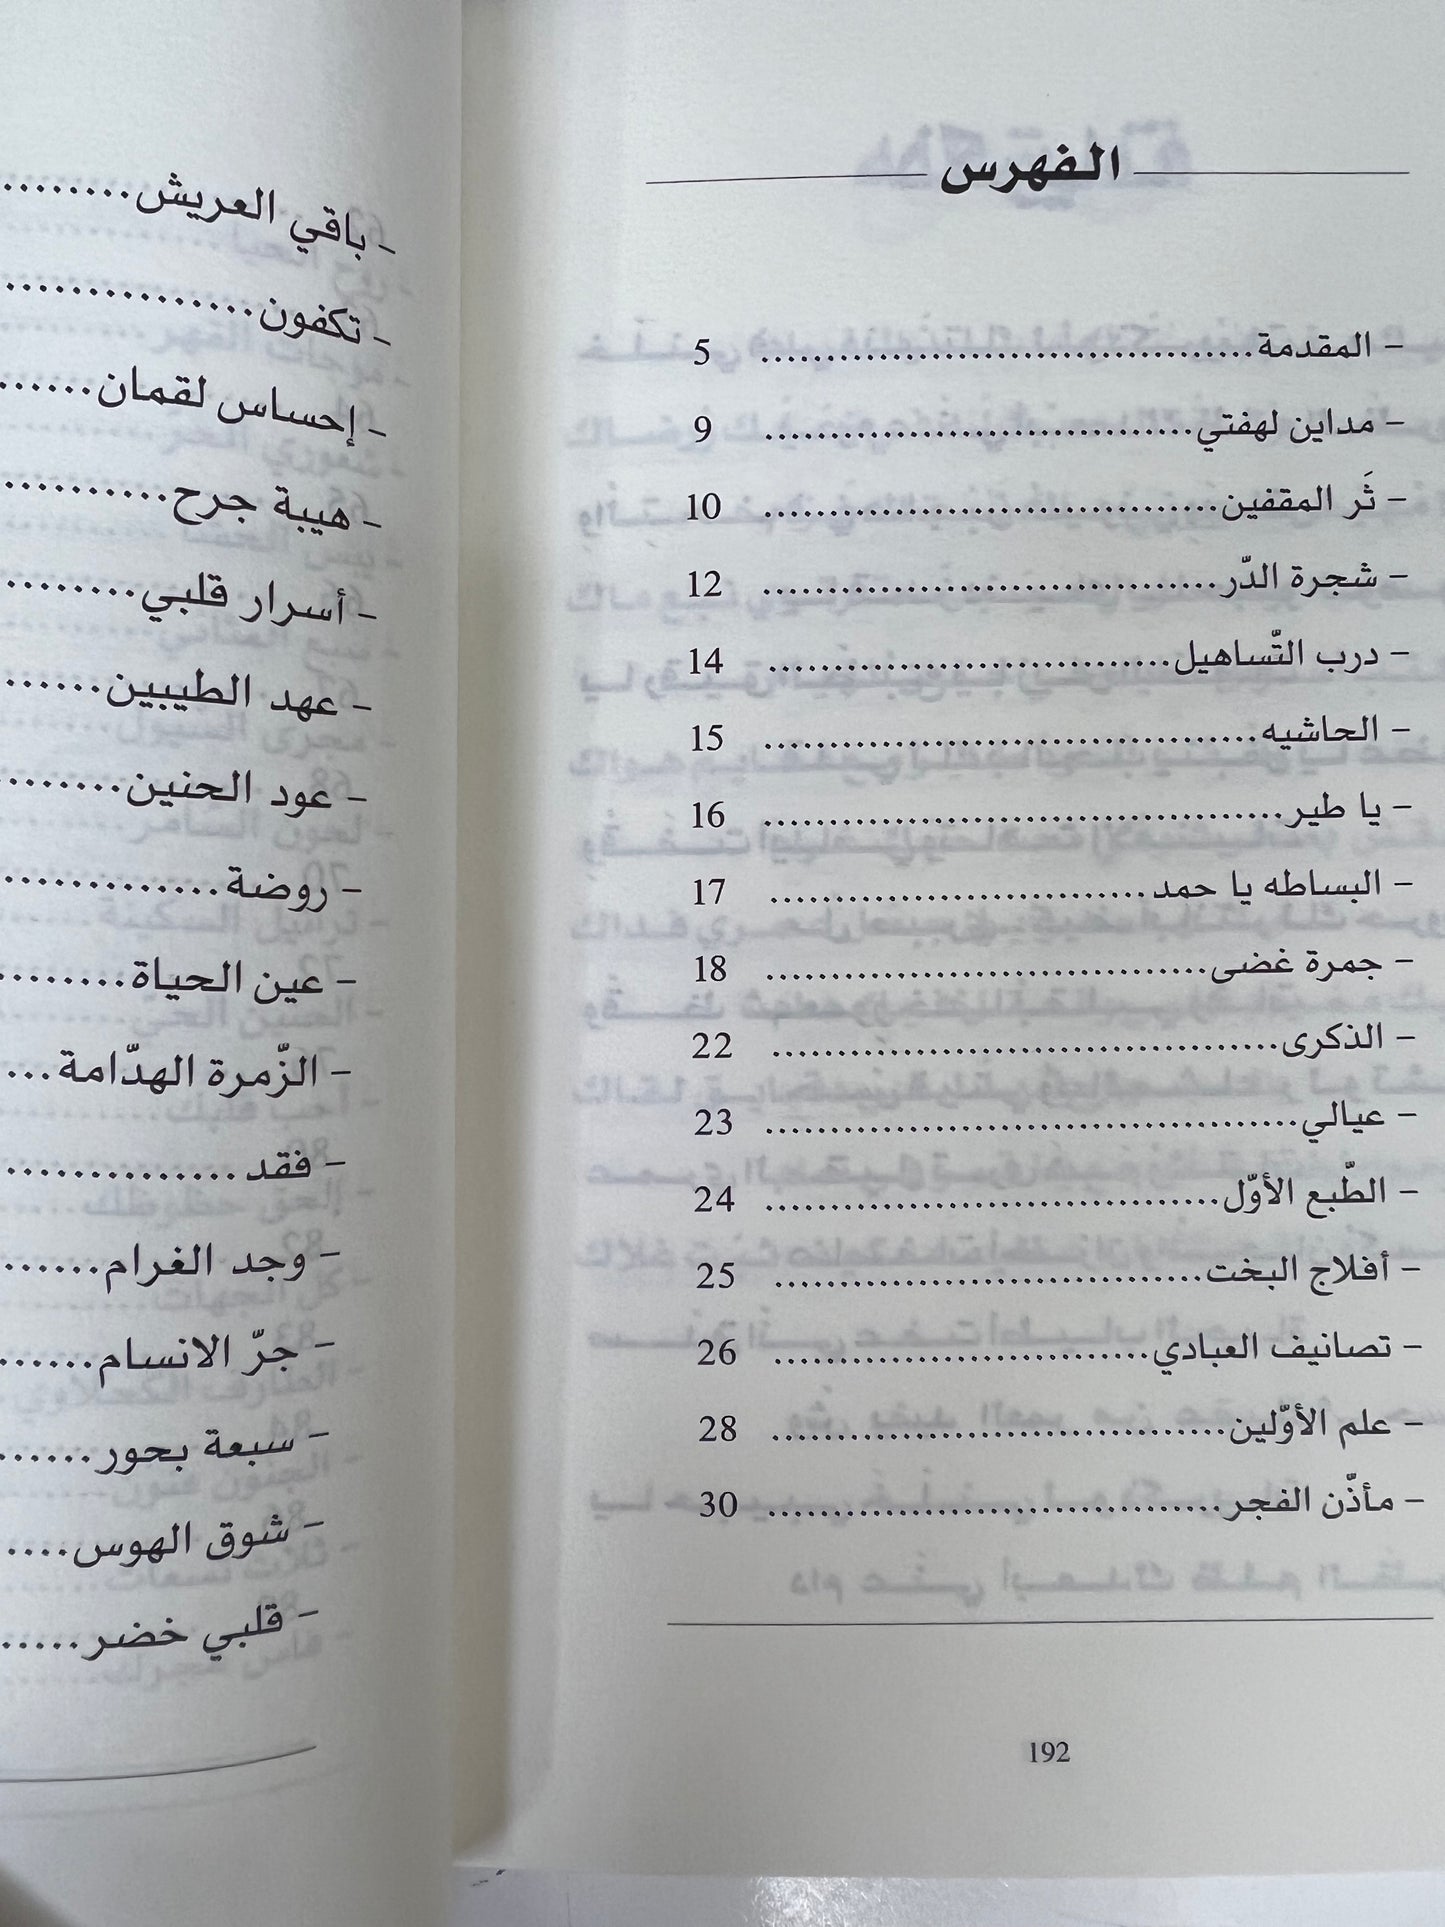 الفهرس
- المقدمة........................................ 5
- مداين لهفتي................................. 9
- ثَر المقفين................................... 10
- شجرة الدّر................................... 12
- درب التّساهيل............................... 14
- الحاشيه...................................... 15
- يا طير........................................ 16
- البساطه يا حمد............................. 17
- جمرة غضى.................................. 18
- الذكرى....................................... 22
- عيالي......................................... 23
- الطّبع الأوّل................................... 24
- أفلاج البخت................................. 25
- تصانيف العبادي............................. 26
- علم الأوّلين................................... 28
- مأذّن الفجر................................... 30
192
- باقي العريش.........
- تكفون...............
- إحساس لقمان.......
- هيبة جرح...........
- أسرار قلبي.........
- عهد الطيبين.......
- عود الحنين........
- روضة..............
- عين الحياة.........
- الزّمرة الهدّامة...
- فقد...............
- وجد الغرام.......
- جرّ الانسام.......
- سبعة بحور.......
- شوق الهوس....
- قلبي خضر......